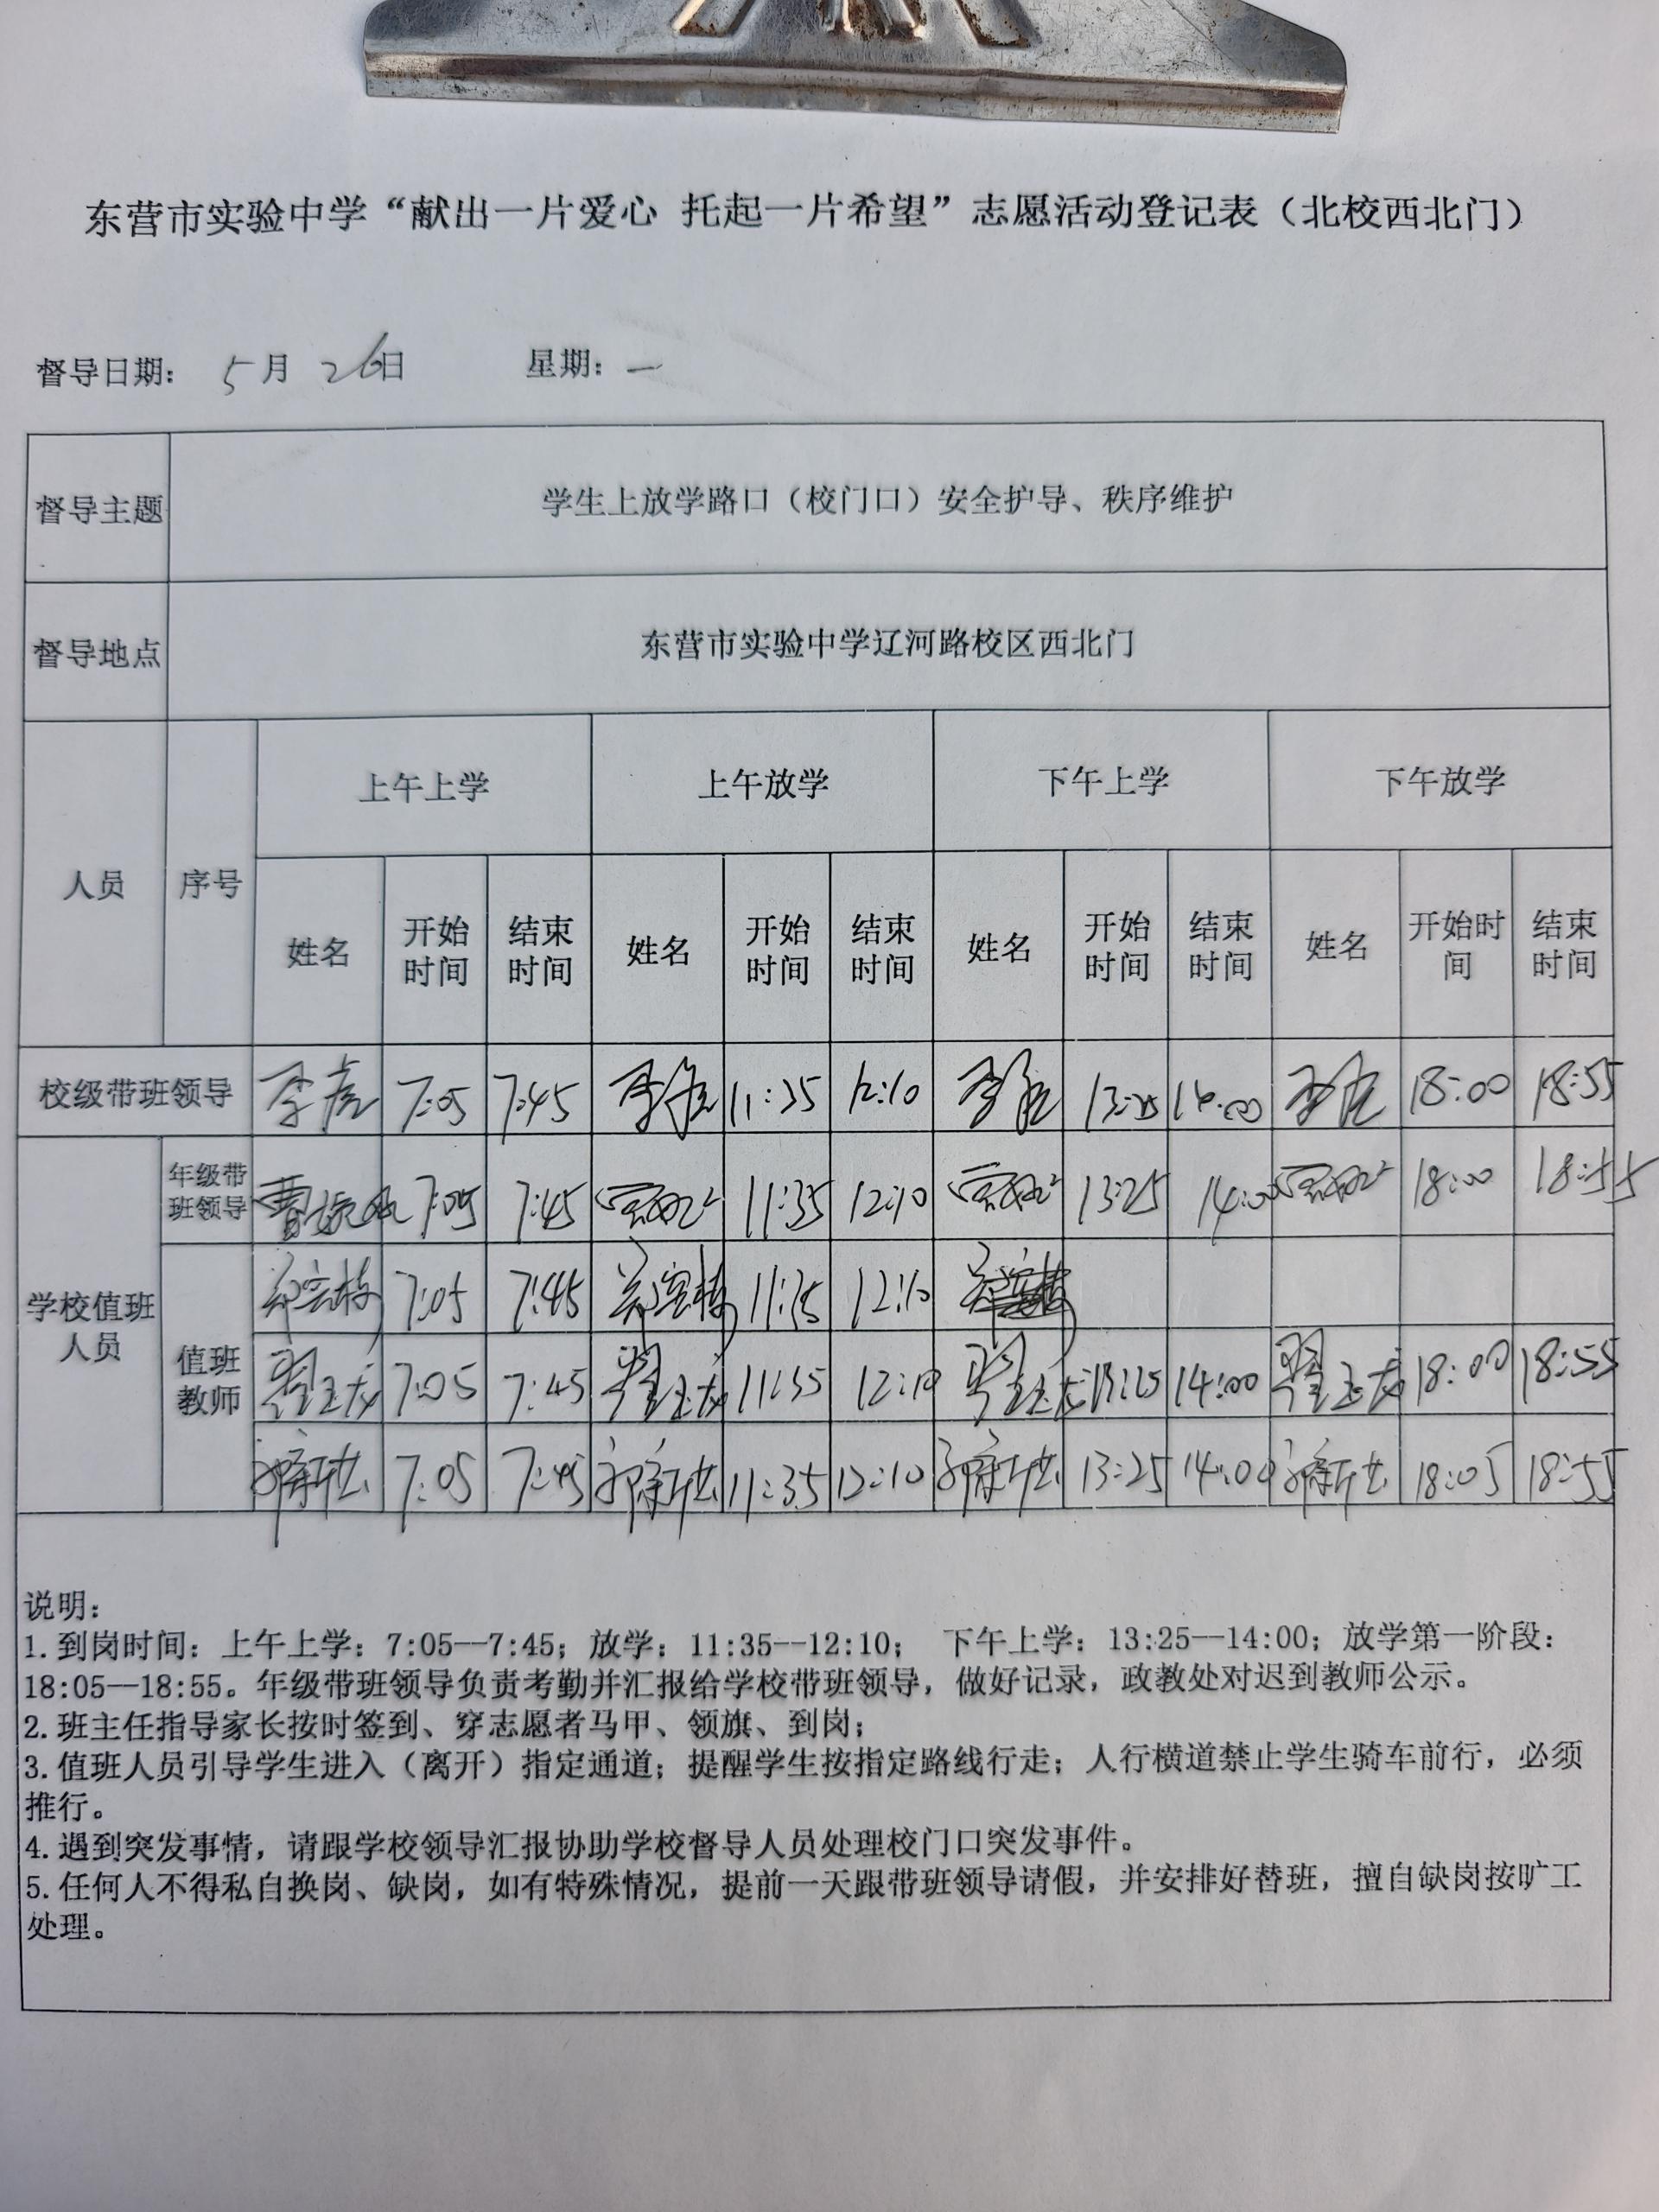 东营市实验中学“献出一片爱心 托起一片希望”志愿活动登记表（北校西北门）
督导日期： 5月 26日 星期：一
督导主题 学生上放学路口（校门口）安全护导、秩序维护
督导地点 东营市实验中学辽河路校区西北门
人员 序号 上午上学 上午放学 下午上学 下午放学
姓名 开始时间 结束时间 姓名 开始时间 结束时间 姓名 开始时间 结束时间 姓名 开始时间 结束时间
校级带班领导 7:05 7:45 11:35 12:10 13:25 14:00 18:00 18:55
学校值班人员
年级带班领导 7:05 7:45 11:35 12:10 13:25 14:00 18:00 18:55
值班教师
郑宝栋 7:05 7:45 郑宝栋 11:35 12:10
翟玉龙 7:05 7:45 翟玉龙 11:35 12:10 翟玉龙 13:25 14:00 翟玉龙 18:00 18:55
7:05 7:45 11:35 12:10 13:25 14:00 18:05 18:55
说明：
1.到岗时间：上午上学：7:05--7:45；放学：11:35--12:10； 下午上学：13:25--14:00；放学第一阶段：
18:05--18:55。年级带班领导负责考勤并汇报给学校带班领导，做好记录，政教处对迟到教师公示。
2.班主任指导家长按时签到、穿志愿者马甲、领旗、到岗；
3.值班人员引导学生进入（离开）指定通道；提醒学生按指定路线行走；人行横道禁止学生骑车前行，必须
推行。
4.遇到突发事情，请跟学校领导汇报协助学校督导人员处理校门口突发事件。
5.任何人不得私自换岗、缺岗，如有特殊情况，提前一天跟带班领导请假，并安排好替班，擅自缺岗按旷工
处理。